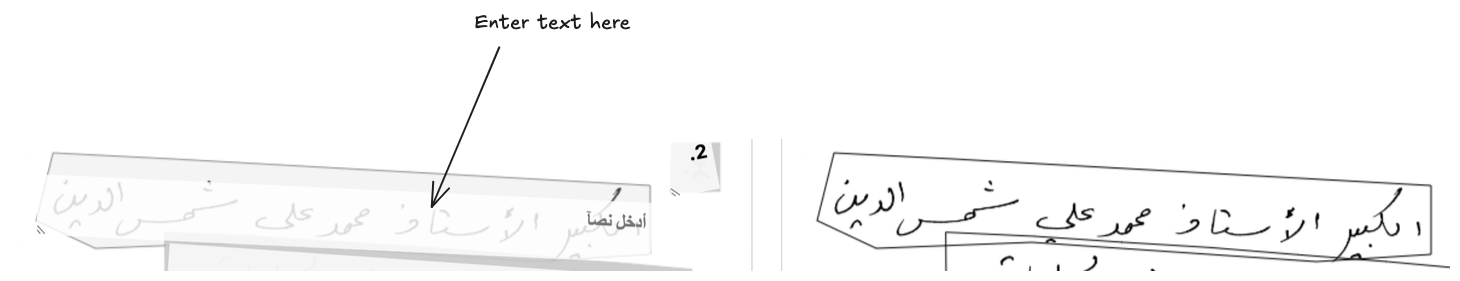 Enter text here
.2
أدخل نصاً
الكبير الأستاذ محمد علي شمس الدين
الكبير الأستاذ محمد علي شمس الدين